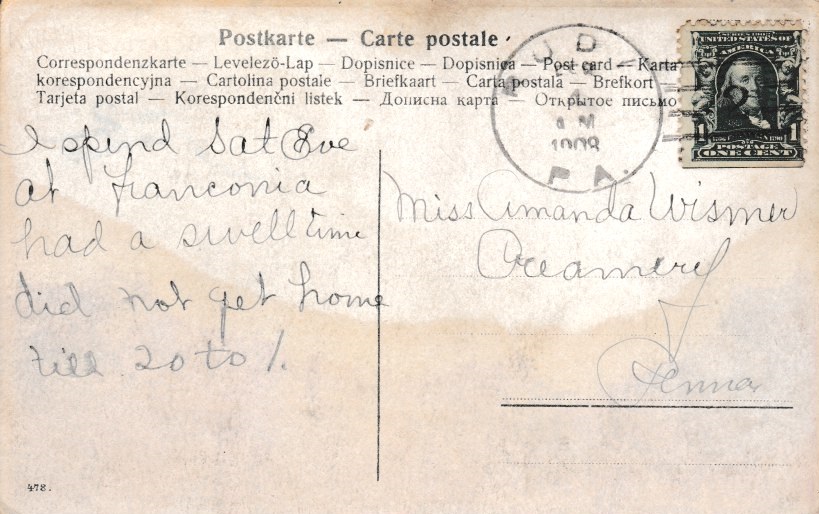 Postkarte — Carte postale
Correspondenzkarte — Levelezö-Lap — Dopisnice — Dopisnica — Post card — Karta
korespondencyjna — Cartolina postale — Briefkaart — Carta postala — Brefkort —
Tarjeta postal — Korespondenčni listek — Дописна карта — Открытое письмо
SERIES 1902
UNITED STATES OF
AMERICA
1 1
POSTAGE
ONE CENT
A M
1908
PA.
I spend Sat Eve
at Franconia
had a swell time
did not get home
till 20 to 1.
Miss Amanda Wismer
Creamery
Penna
478.